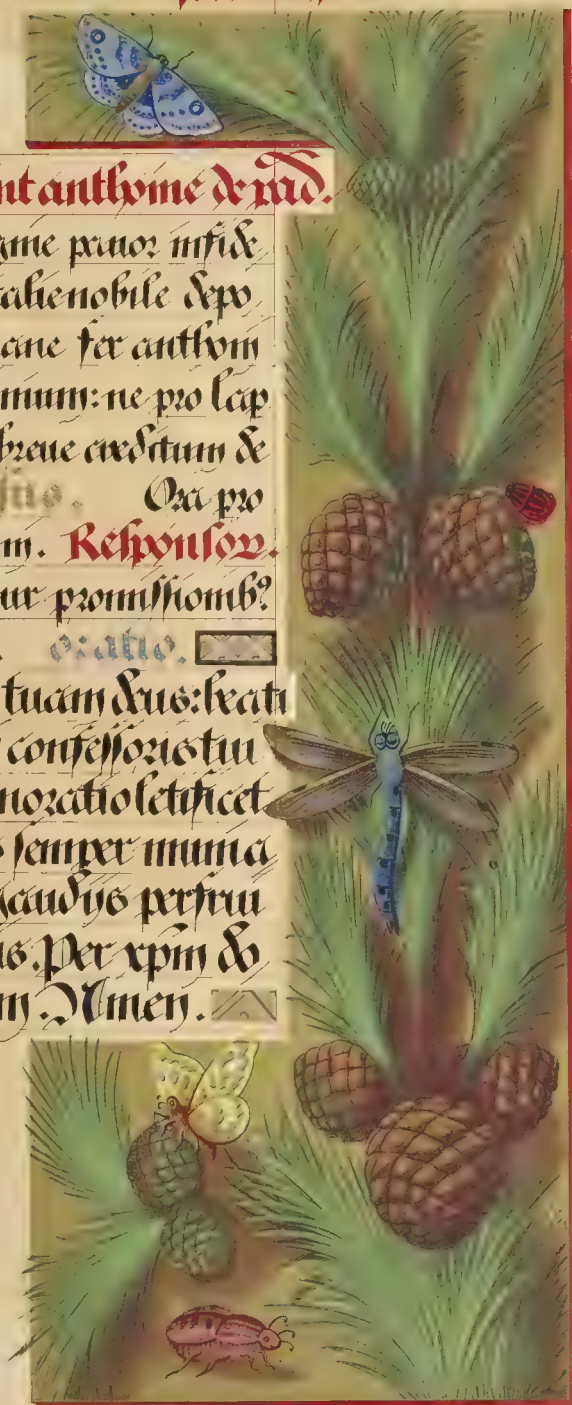 nt anthoine de pad.
gne pauor infide
calienobile depo
ane fer anthoni
mum: ne pro lap
breue creditum de
Ora pro
m. Responsor.
ur promissionib?
oratio.
tuam deus: beati
confessoris tui
moratio letificet
semper munia
gaudijs perfrui
us. Per xpm do
m. Amen.